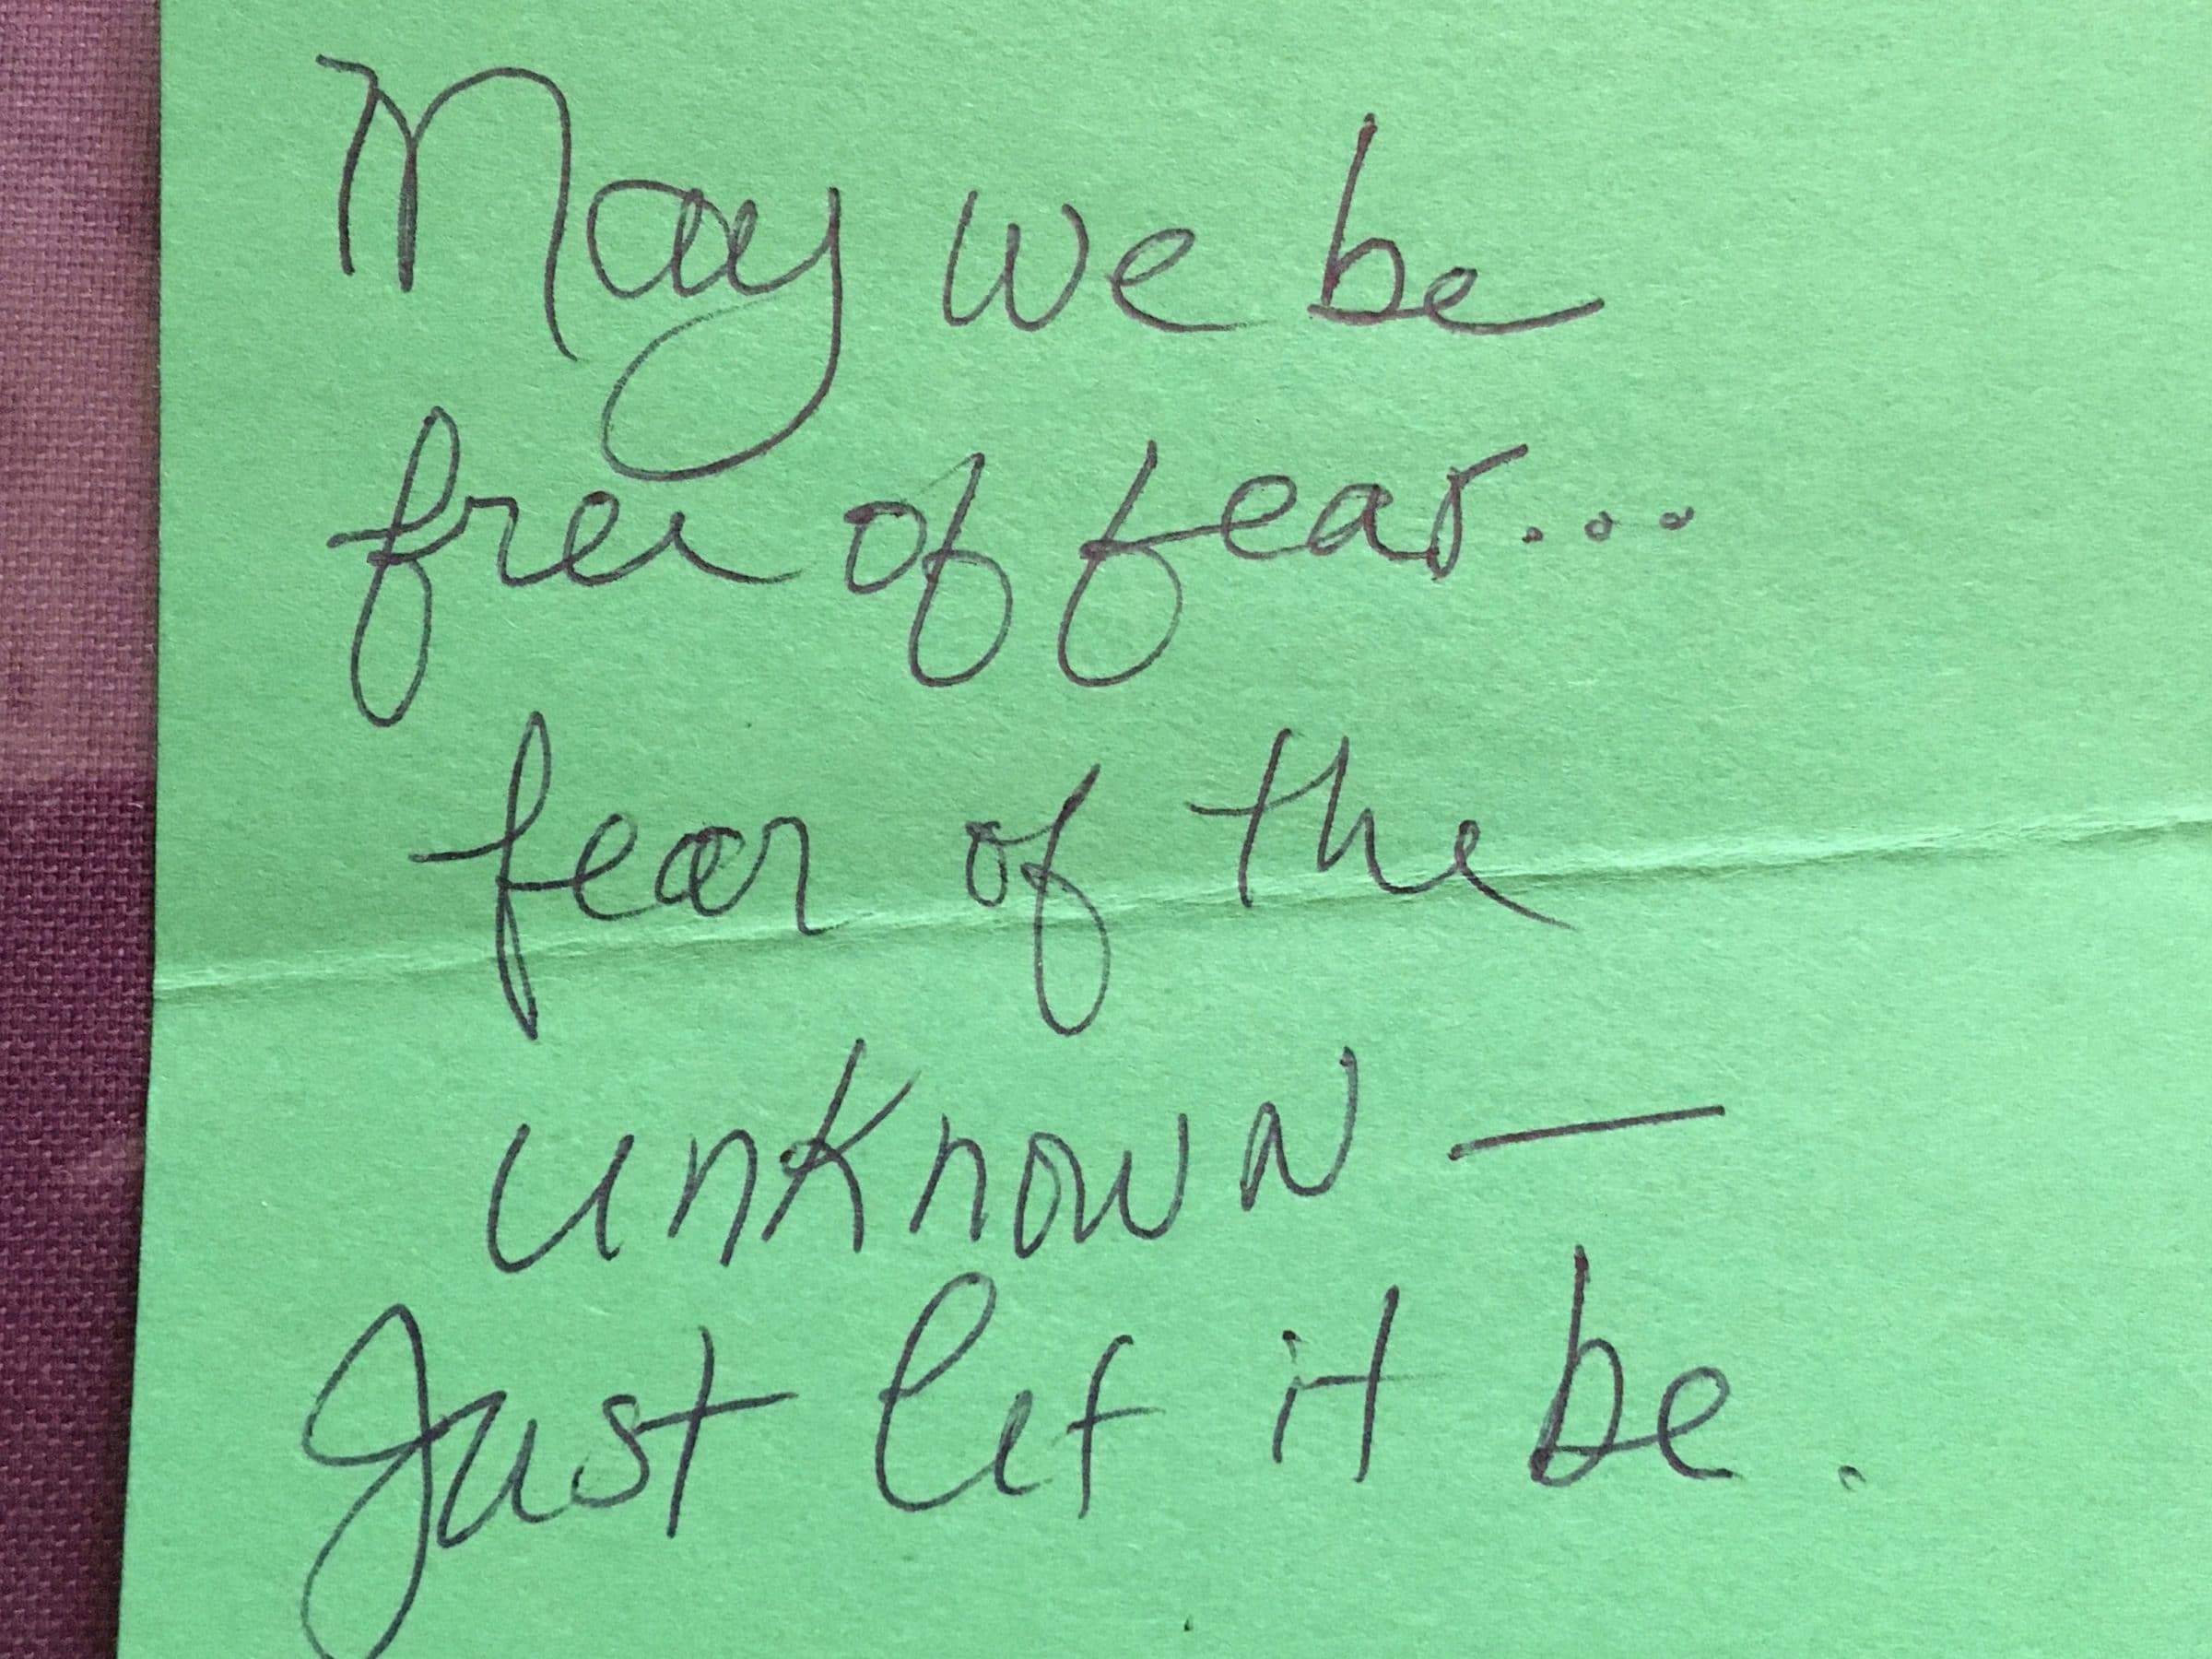 May we be
free of fear...
fear of the
unknown —
Just let it be.